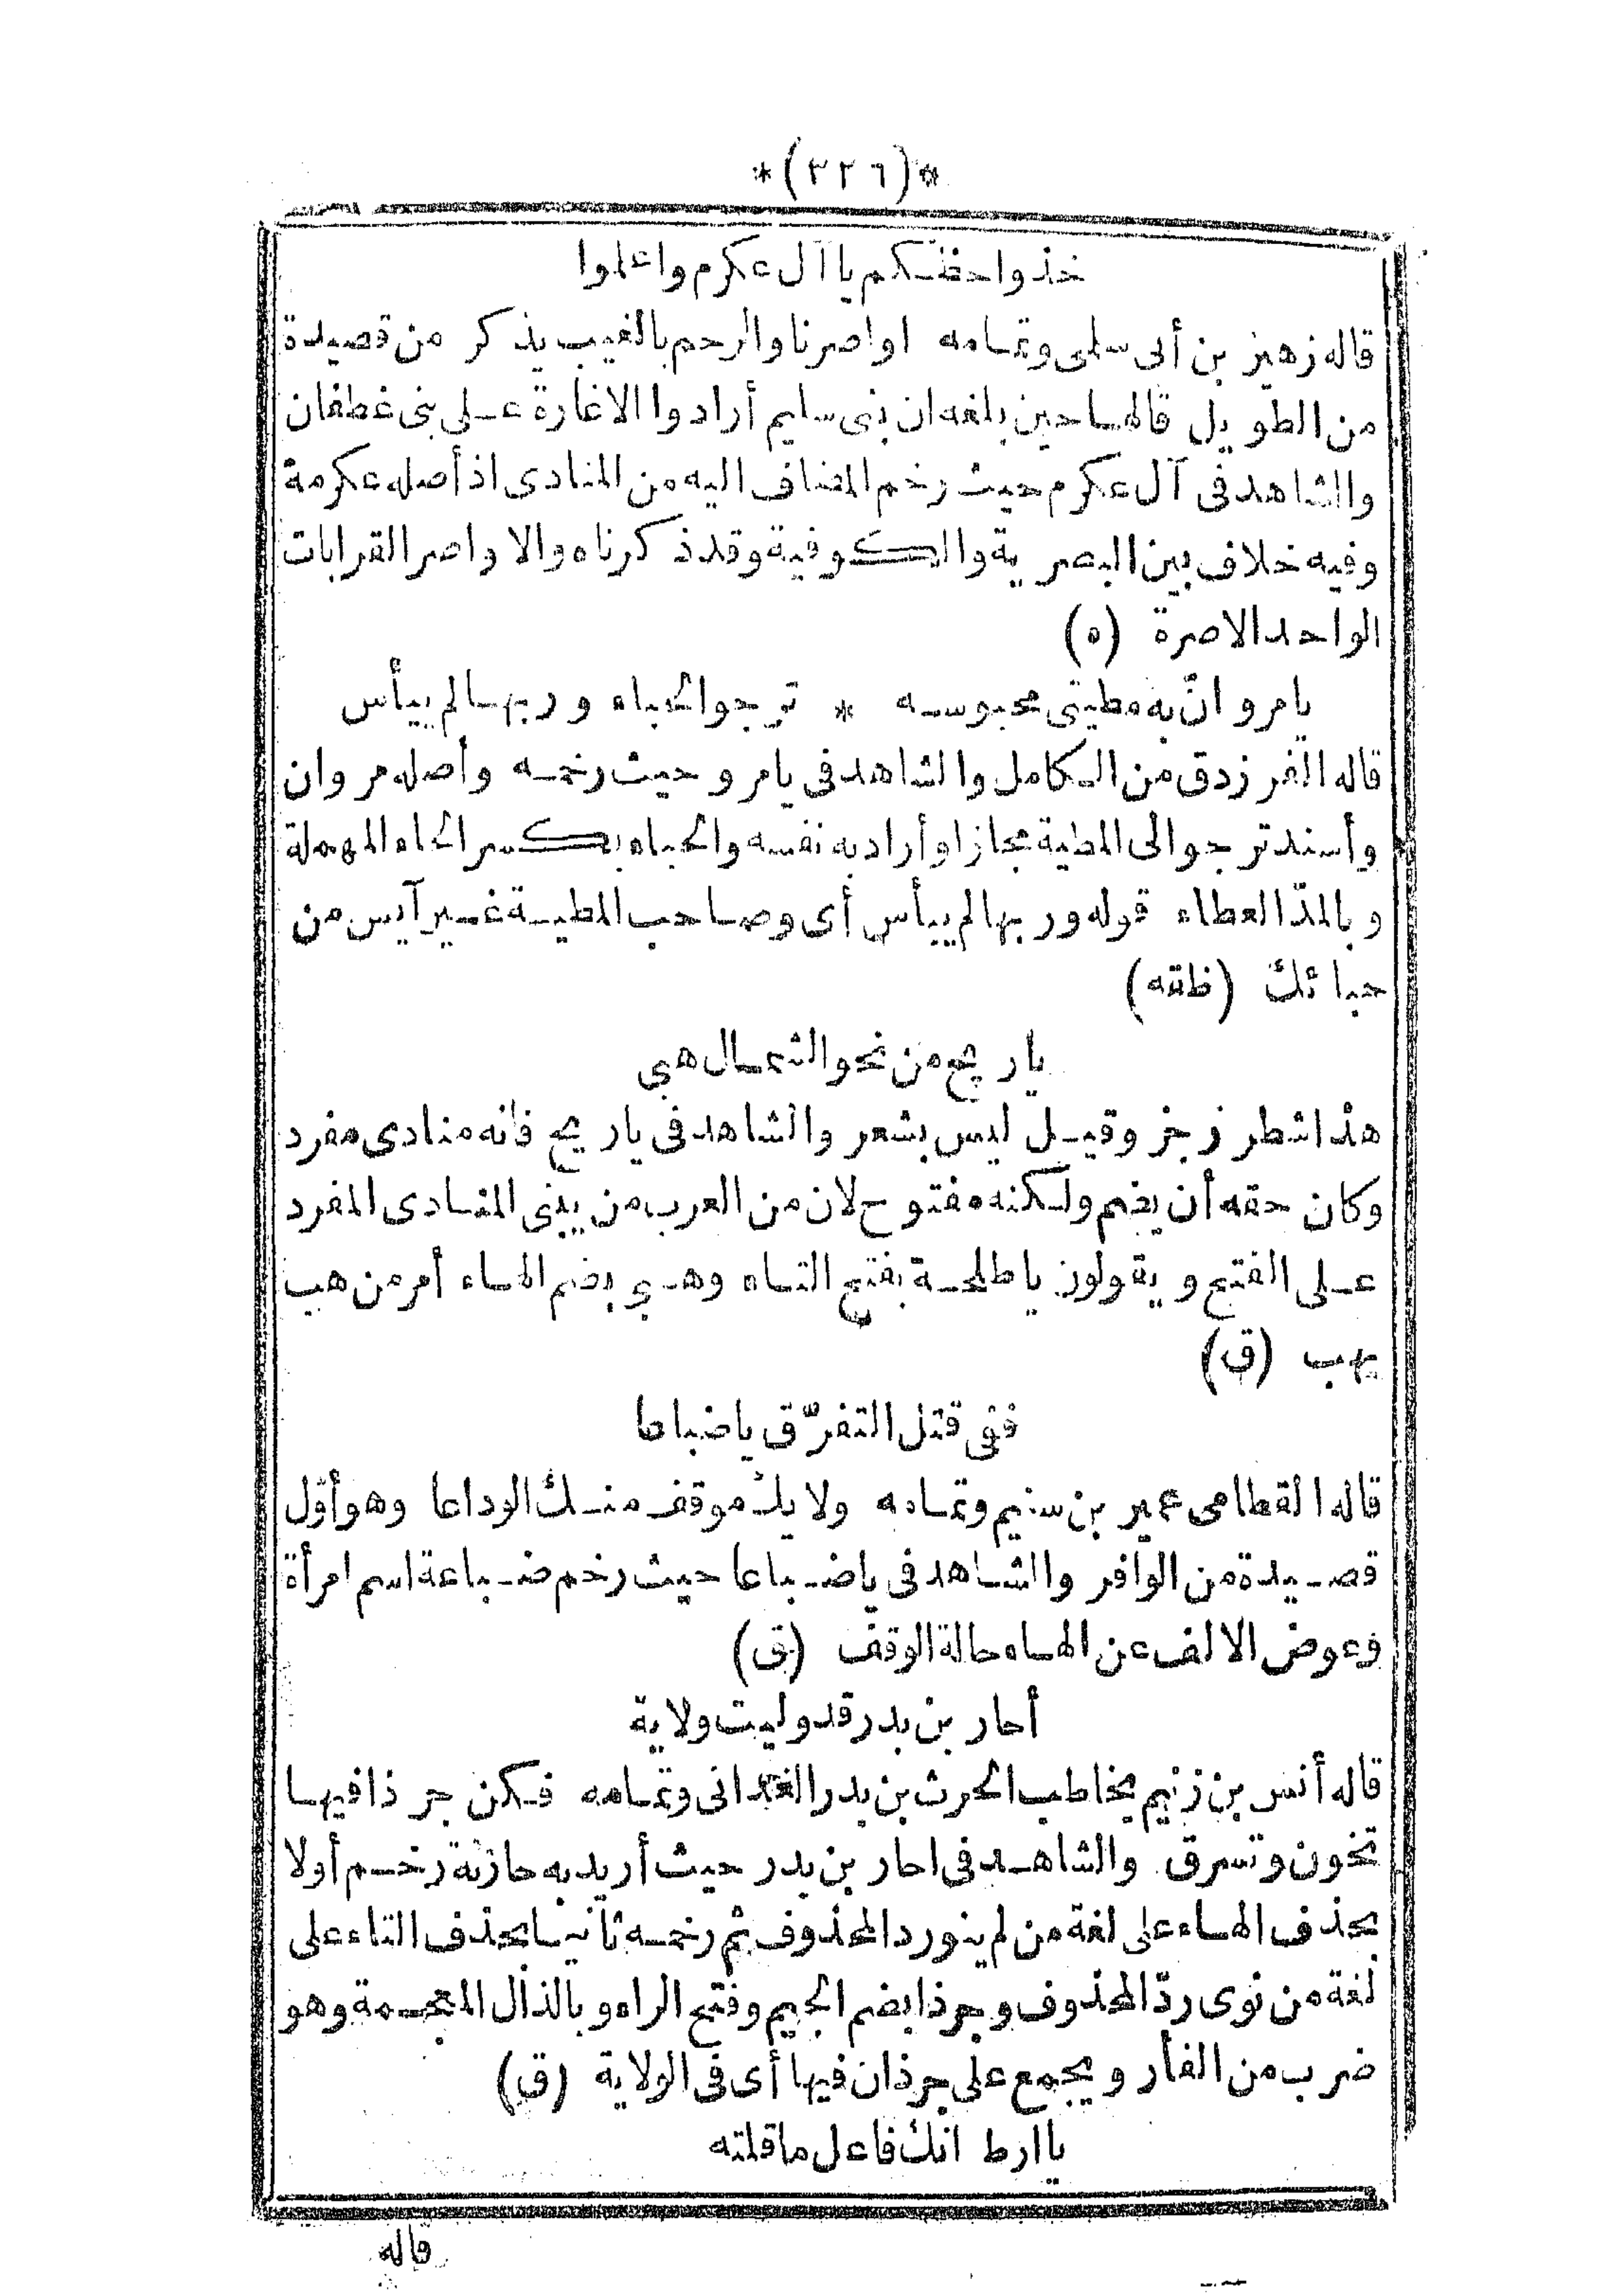 *(٣٢٦)*
خذوا حظكم يا آل عكرم واعلموا
قاله زهير بن أبى سلمى وتمامه اواصرنا والرحم بالغيب يذكر من قصيدة
من الطويل قالها حين بلغه ان بنى سليم أرادوا الاغارة على بنى غطفان
والشاهد فى آل عكرم حيث رخم المضاف اليه من المنادى اذ أصله عكرمة
وفيه خلاف بين البصرية والكوفية وقد ذكرناه والاواصر القرابات
الواحد الاصرة (ه)
يا مرو انّ مطيتى محبوسه * ترجو الحباء وربها لم ييأس
قاله الفرزدق من الكامل والشاهد فى يا مرو حيث رخمه وأصله مروان
وأسند ترجو الى المطية مجازا وأراد به نفسه والحباء بكسر الحاء المهملة
وبالمدّ العطاء قوله وربها لم ييأس أى وصاحب المطية غير آيس من
حبائك (ظقه)
يا ريح من نحو الشمال هبي
هذا شطر رجز وقيل ليس بشعر والشاهد فى يا ريح فانه منادى مفرد
وكان حقه أن يضم ولكنه مفتوح لان من العرب من يبنى المنادى المفرد
على الفتح ويقولون يا طلحة بفتح التاء وهبي بضم الهاء أمر من هب
يهب (ق)
قفى قبل التفرّق يا ضباعا
قاله القطامى عمير بن سنيم وتمامه ولا يك موقف منك الوداعا وهو أوّل
قصيدة من الوافر والشاهد فى يا ضباعا حيث رخم ضباعة اسم امرأة
وعوض الالف عن الهاء حالة الوقف (ق)
أحار بن بدر قد وليت ولاية
قاله أنس بن زنيم يخاطب الحرث بن بدر الغدانى وتمامه فكن جرذا فيها
تخون وتسرق والشاهد فى احار بن بدر حيث أريد به حارثة رخم أولا
بحذف الهاء على لغة من لم ينو رد المحذوف ثم رخمه ثانيا بحذف التاء على
لغة من نوى ردّ المحذوف وجرذا بضم الجيم وفتح الراء وبالذال المعجمة وهو
ضرب من الفأر ويجمع على جرذان فيها أى فى الولاية (ق)
يا ارط انك فاعل ما قلته
قاله